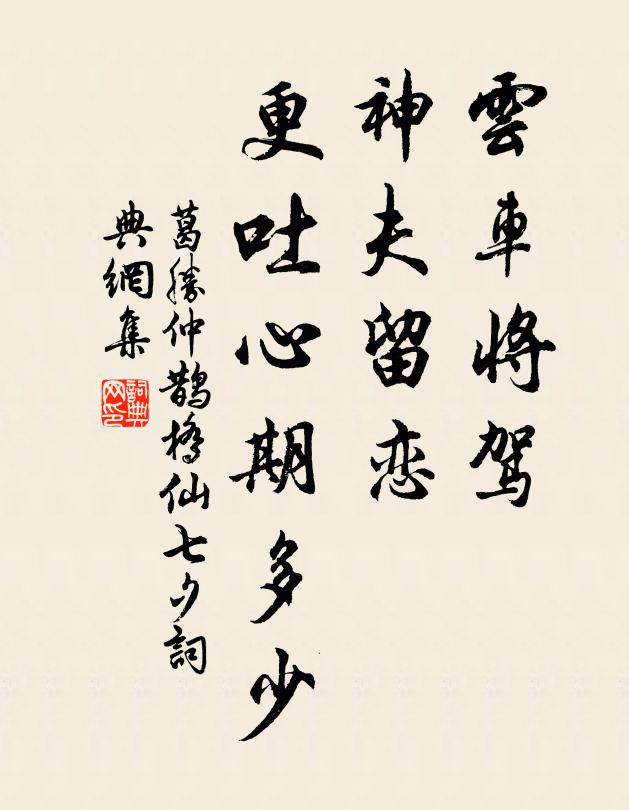 雲車將駕
神夫留恋
更吐心期多少
葛勝仲鵲橋仙七夕詞
典網集
詞典網印